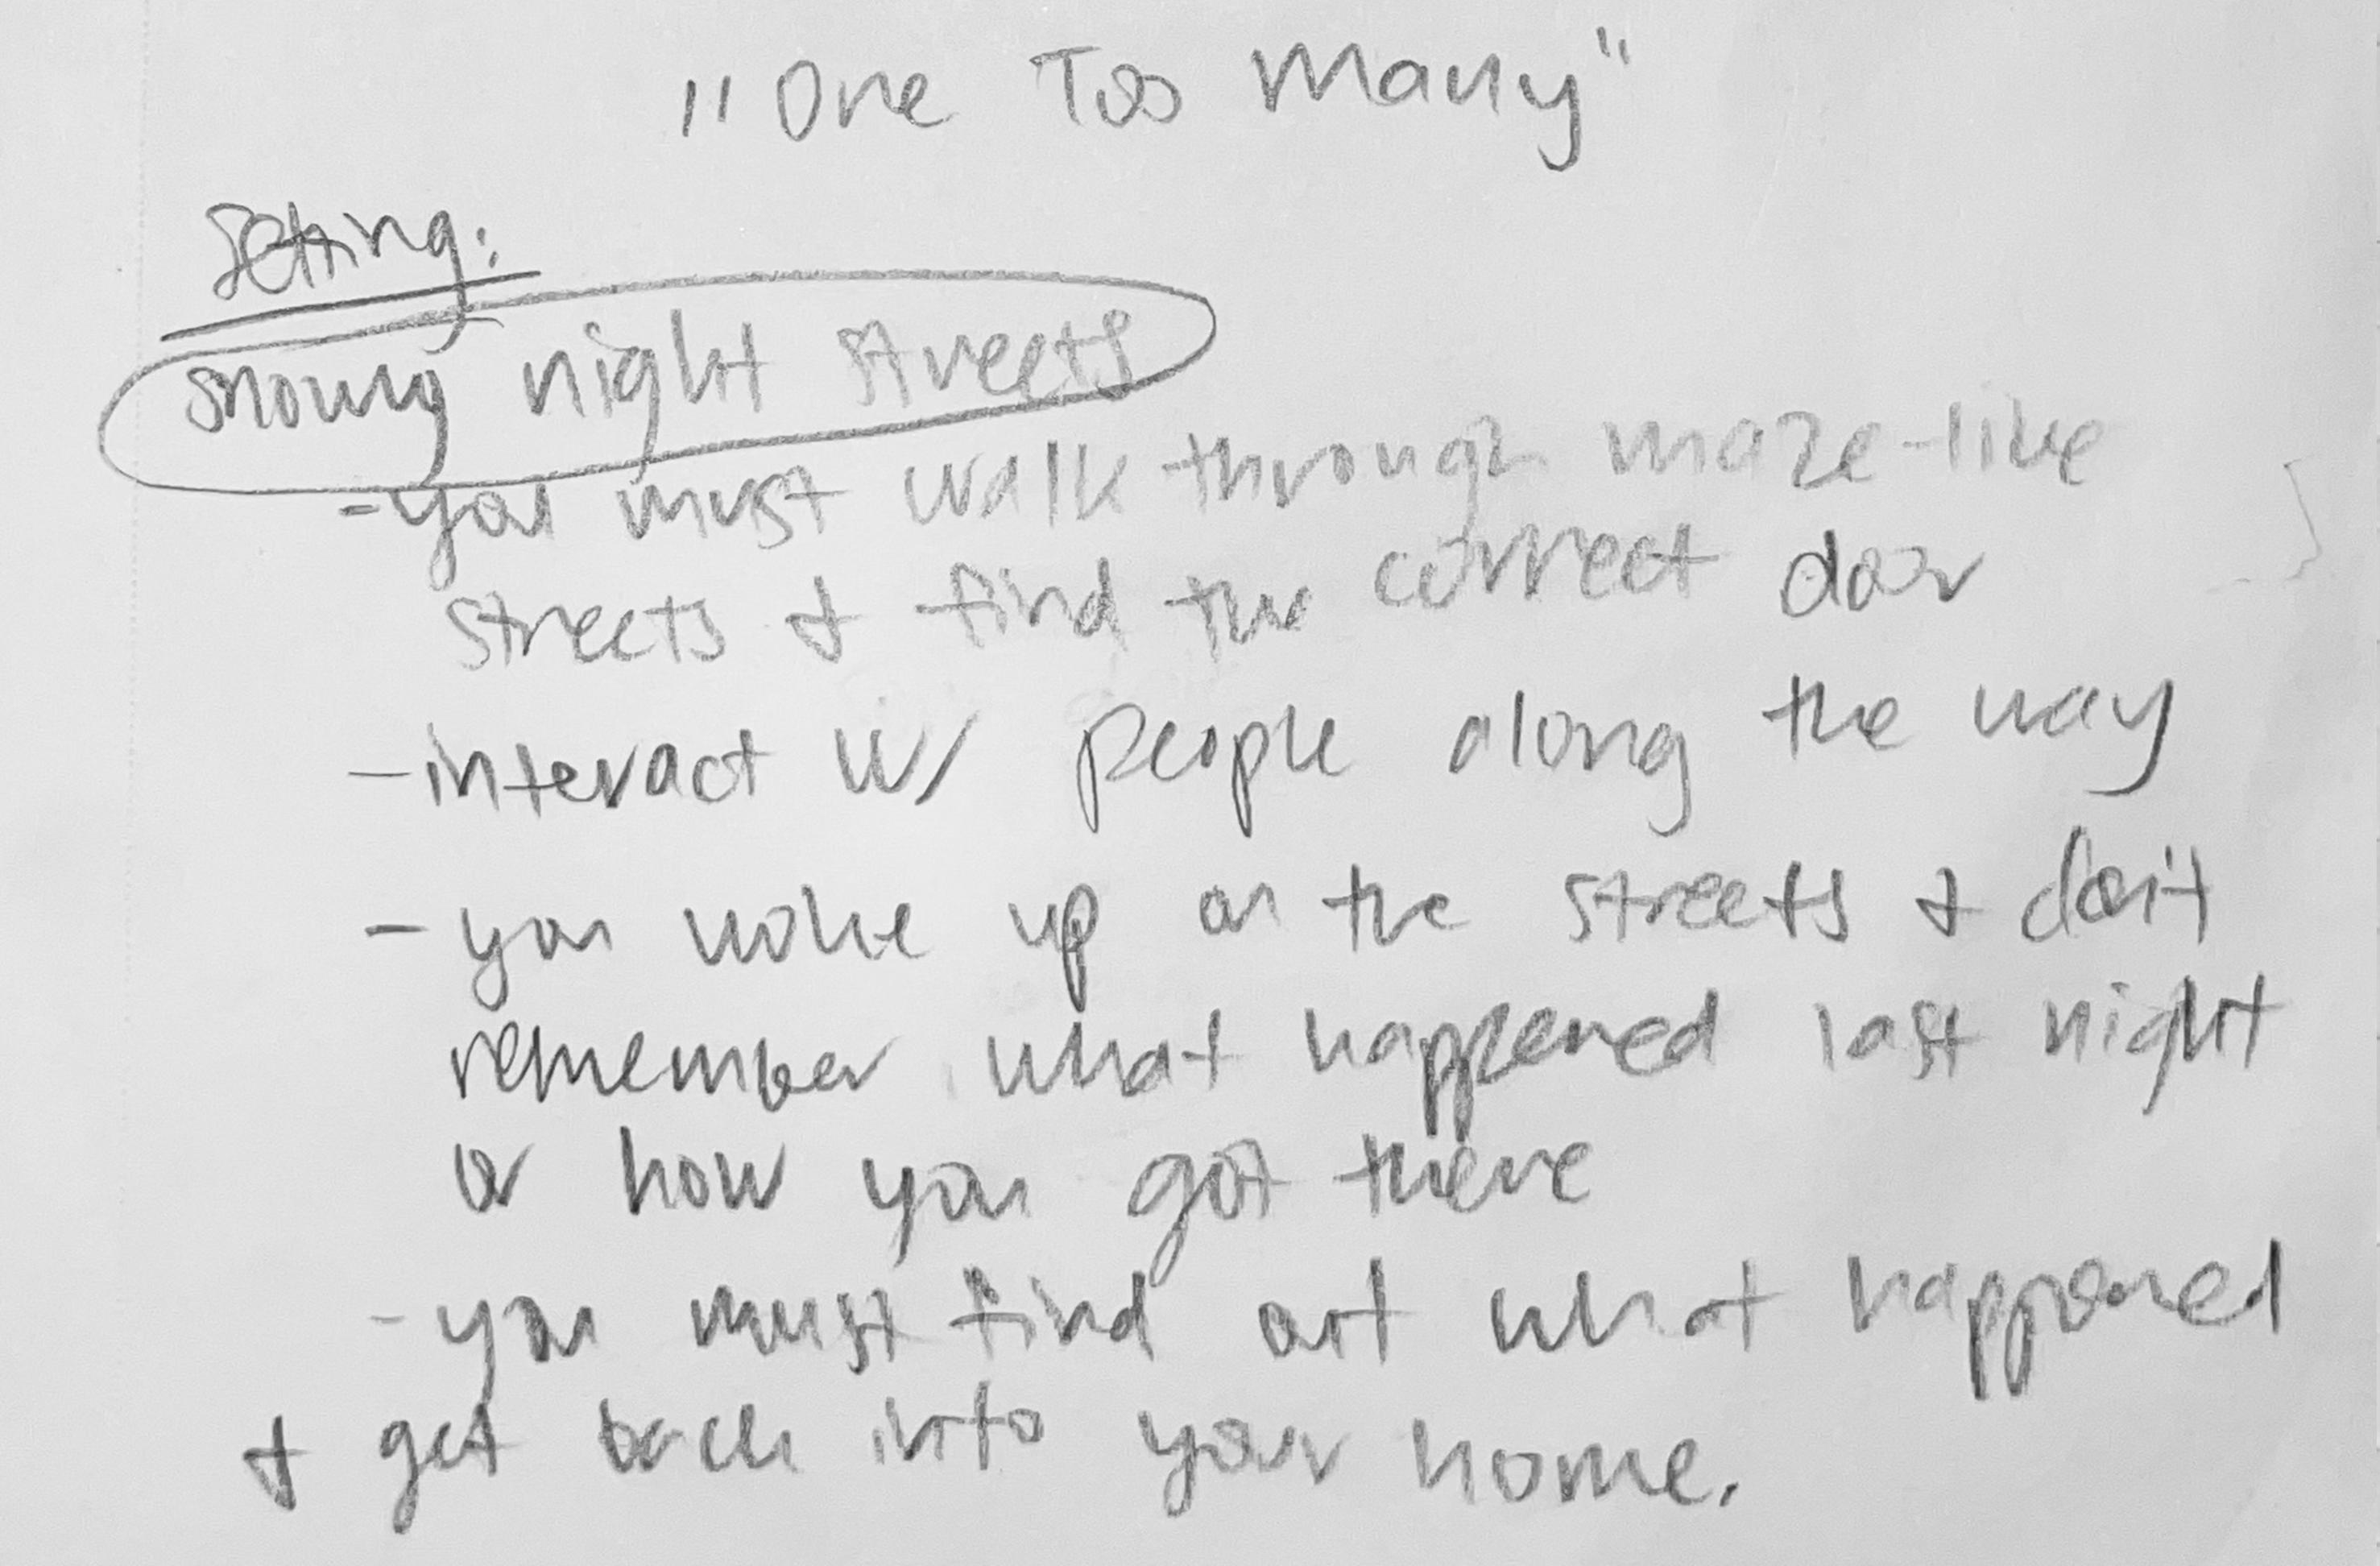 "One Too Many"
Setting:
snowy night streets
- you must walk through maze-like
streets & find the correct door
- interact w/ people along the way
- you woke up on the streets & don't
remember what happened last night
or how you got there
- you must find out what happened
& get back into your home.